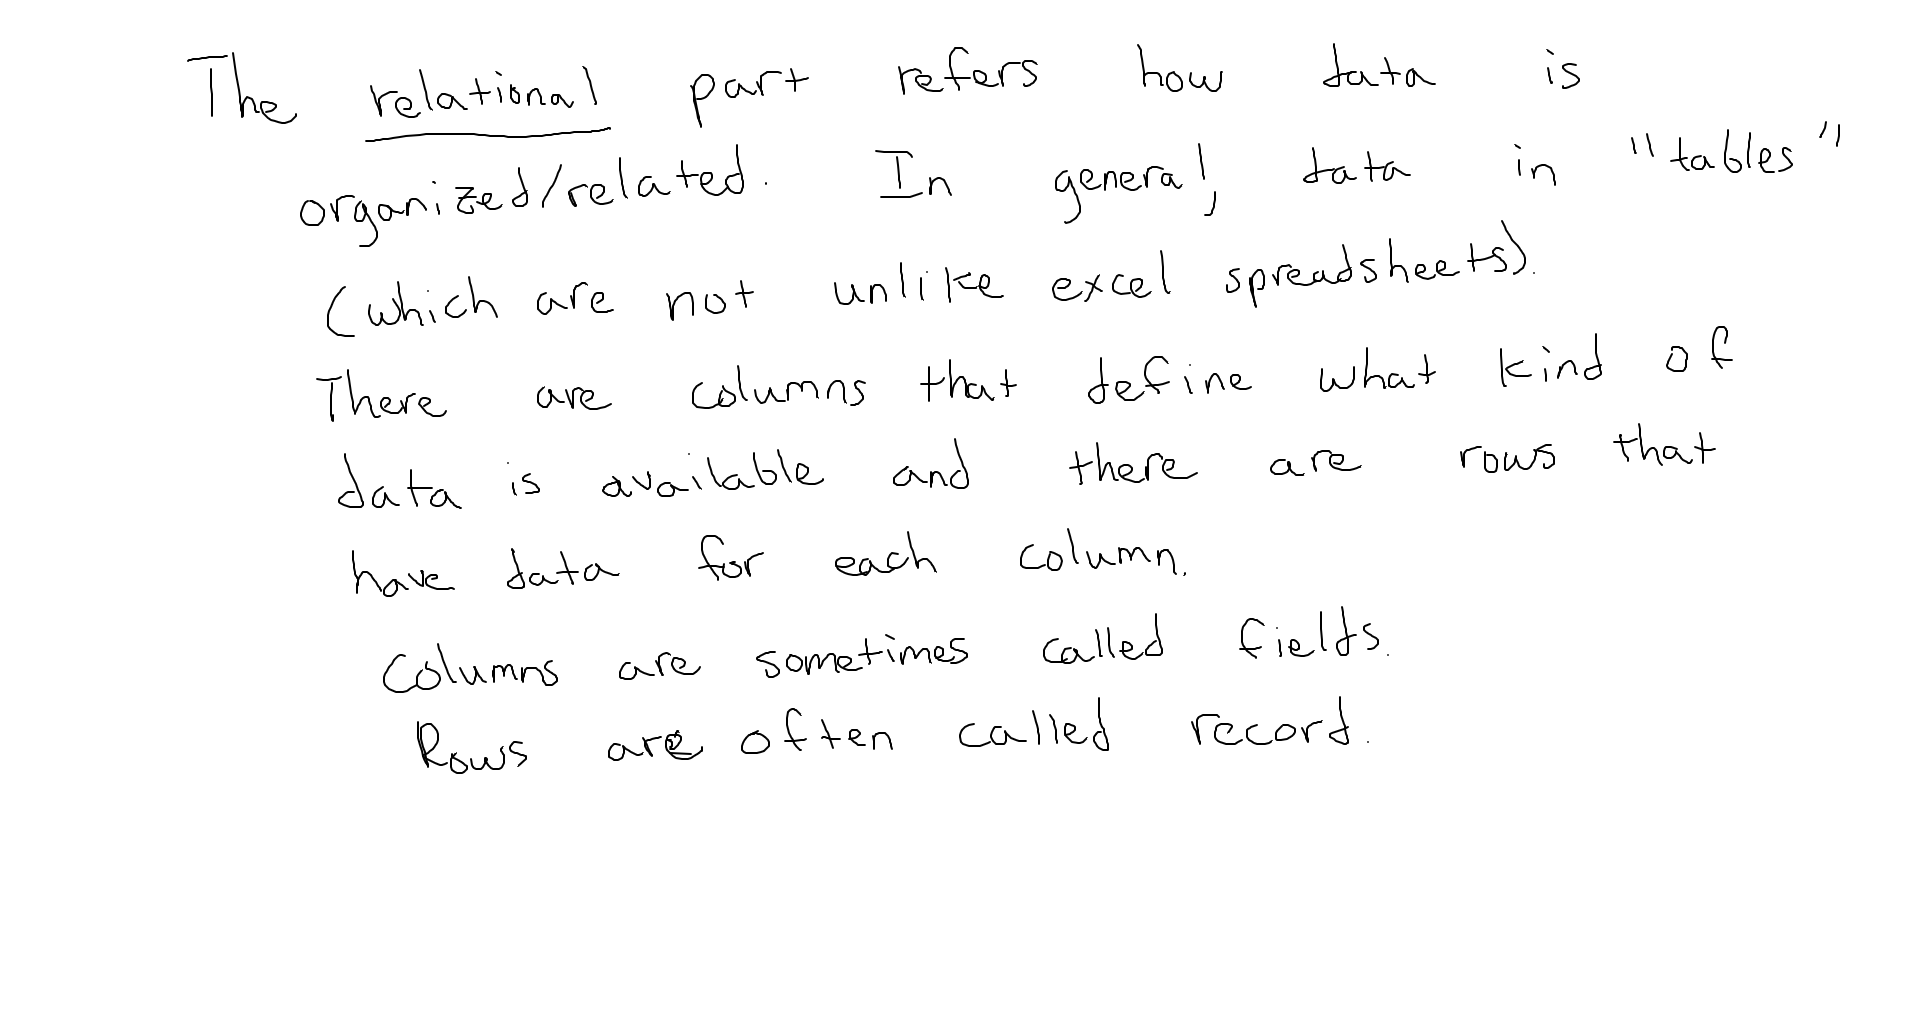 The relational part refers how data is
organized/related. In general, data in "tables"
(which are not unlike excel spreadsheets).
There are columns that define what kind of
data is available and there are rows that
have data for each column.
Columns are sometimes called fields.
Rows are often called record.